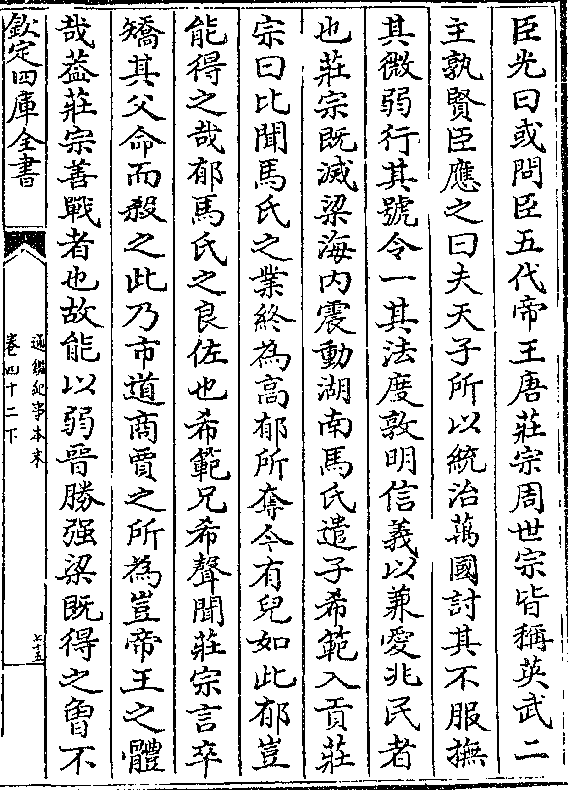 臣光曰或問臣五代帝王唐莊宗周世宗皆稱英武二
主孰賢臣應之曰夫天子所以統治萬國討其不服撫
其微弱行其號令一其法度敦明信義以兼愛兆民者
也莊宗既滅梁海内震動湖南馬氏遣子希範入貢莊
宗曰比聞馬氏之業終為高郁所奪今有兒如此郁豈
能得之哉郁馬氏之良佐也希範兄希聲聞莊宗言卒
矯其父命而殺之此乃市道商賈之所為豈帝王之體
哉葢莊宗善戰者也故能以弱晉勝强梁既得之曾不
欽定四庫全書
通鑑紀事本末
卷四十二下
七十五